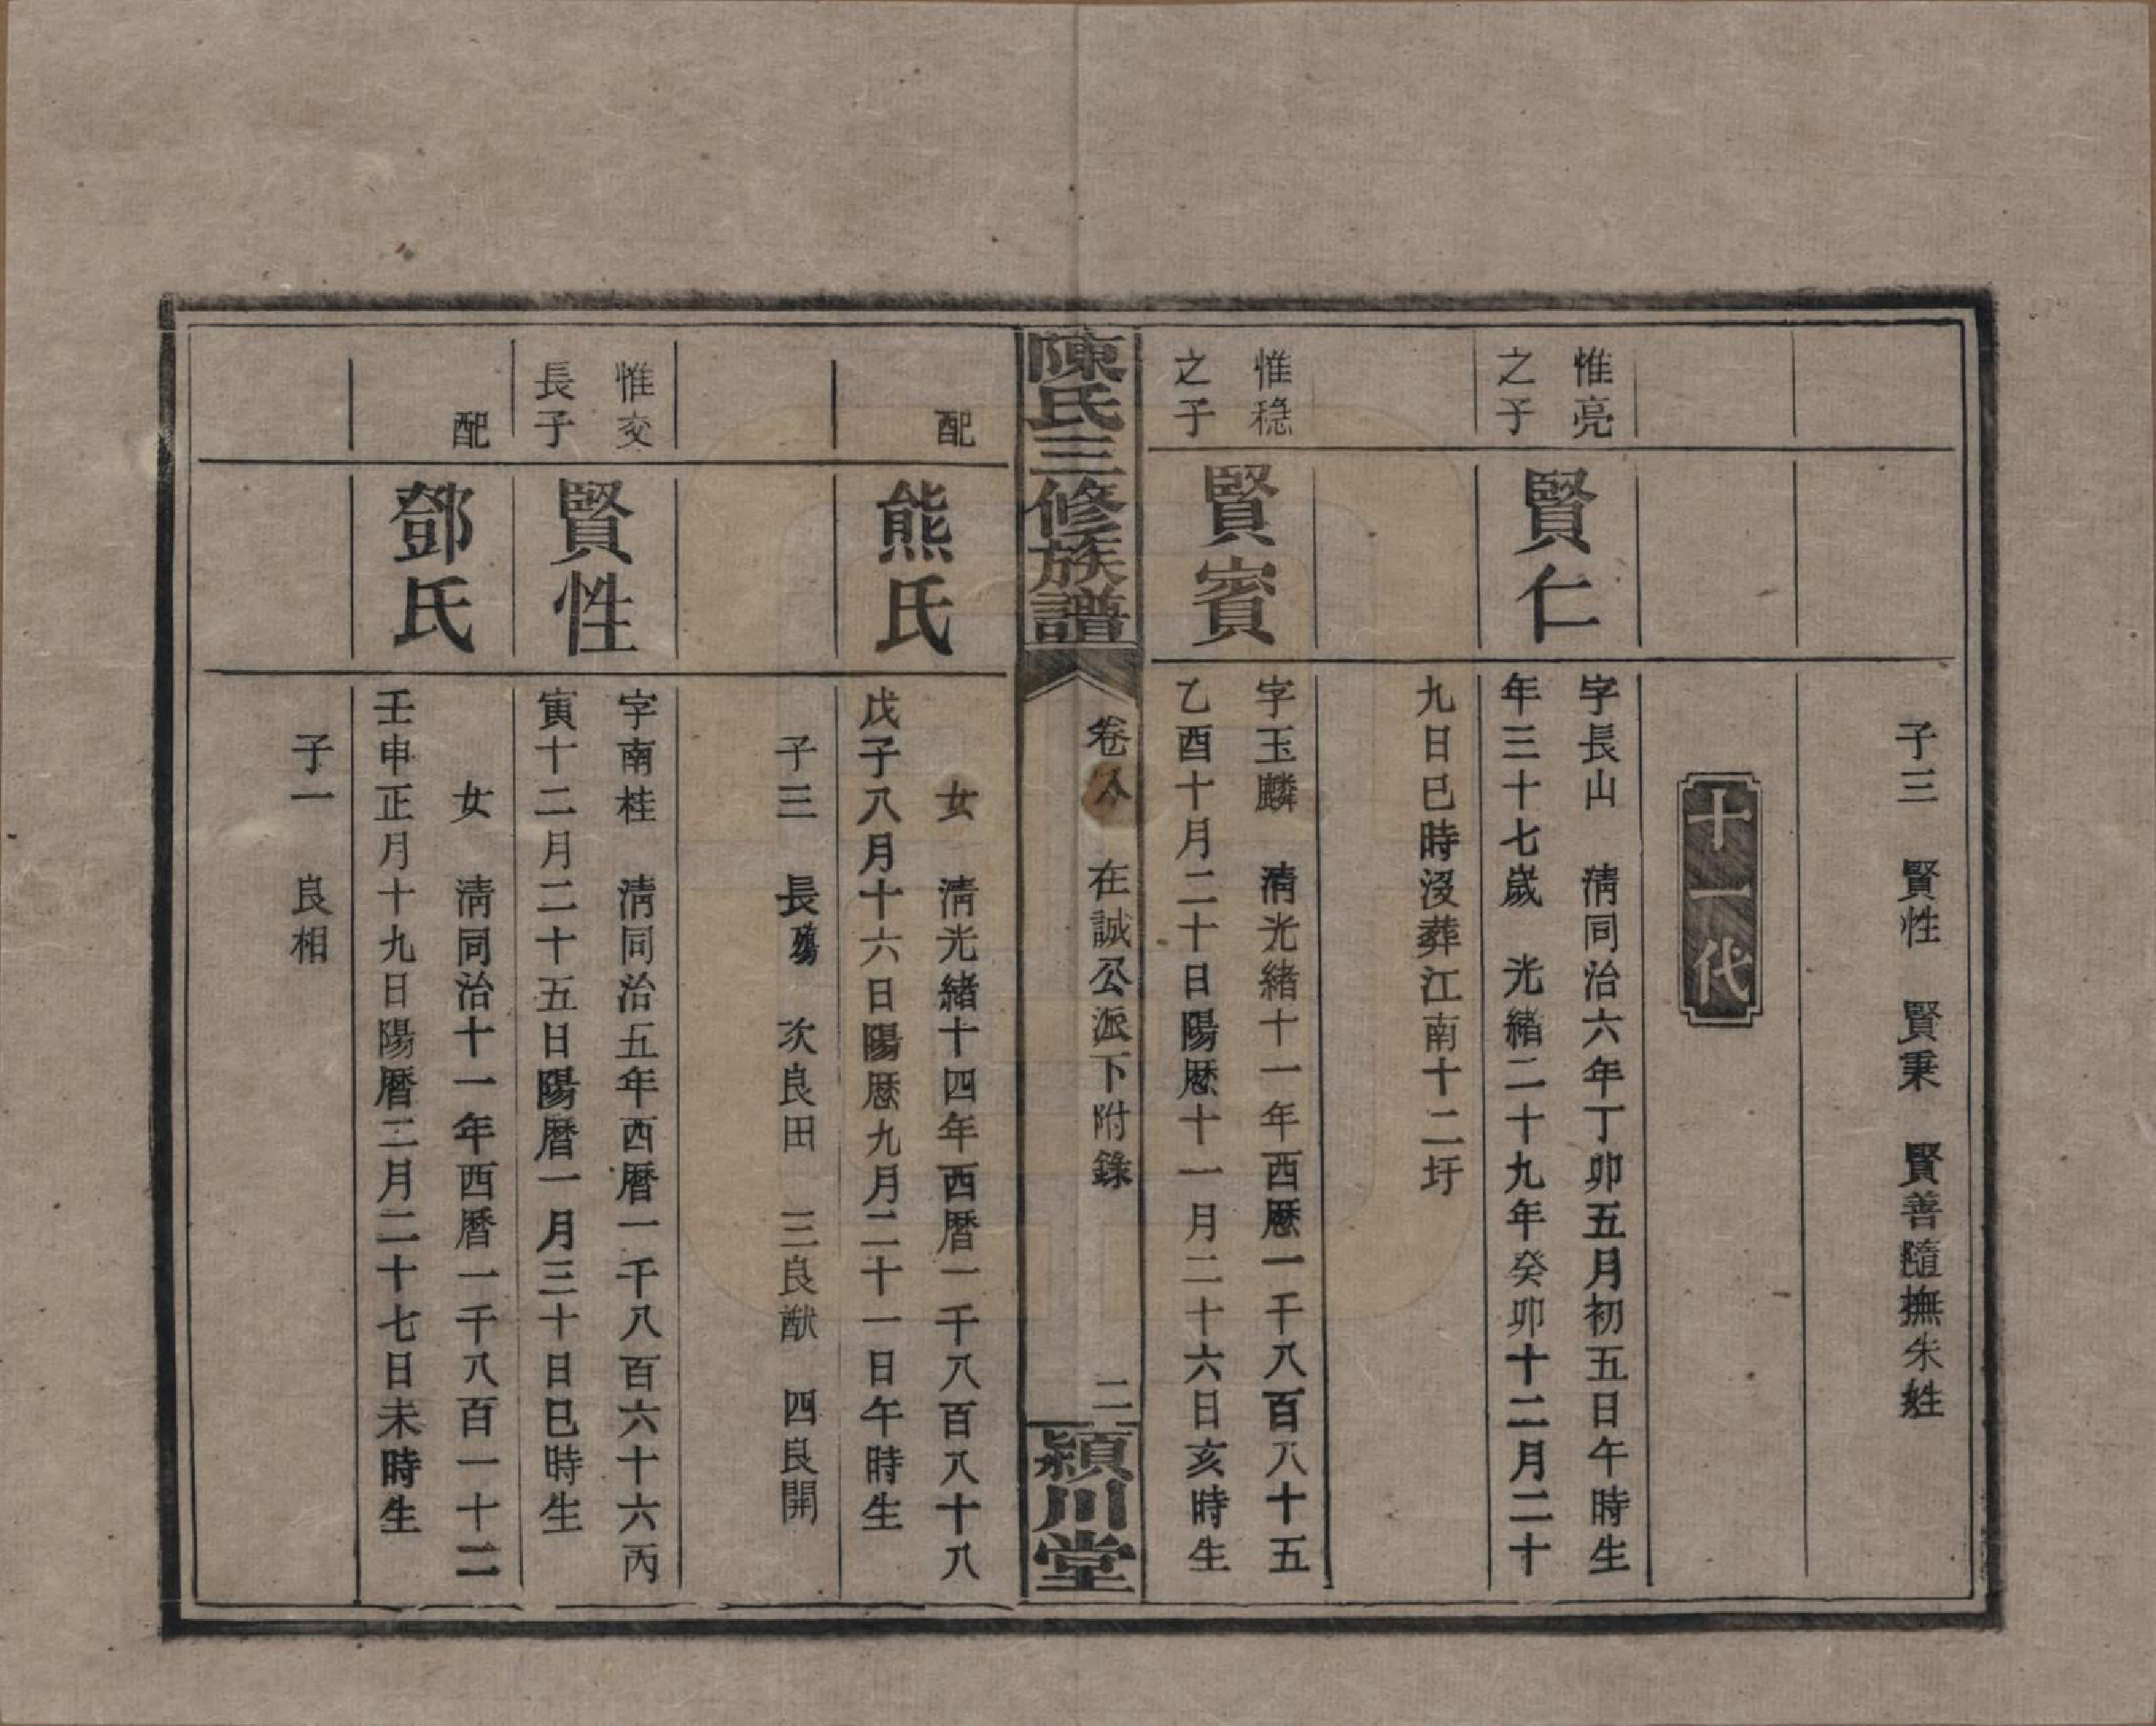 子三　賢性　賢秉　賢善隨撫朱姓
十一代
惟亮
之子
賢仁
字長山　清同治六年丁卯五月初五日午時生
年三十七歲　光緒二十九年癸卯十二月二十
九日巳時沒葬江南十二圩
惟穏
之子
賢賓
字玉麟　清光緒十一年西厯一千八百八十五
乙酉十月二十日陽厯十一月二十六日亥時生
陳氏三修族譜
卷　在誠公派下附錄
二
潁川堂
配
熊氏
女　清光緒十四年西暦一千八百八十八
戊子八月十六日陽厯九月二十一日午時生
子三　長殤　次良田　三良猷　四良開
惟交
長子
賢性
字南桂　清同治五年西暦一千八百六十六丙
寅十二月二十五日陽暦一月三十日巳時生
配
鄧氏
女　清同治十一年西暦一千八百一十二
壬申正月十九日陽暦二月二十七日未時生
子一　良相